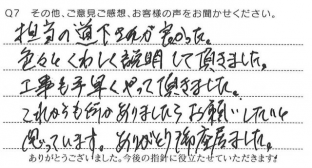 Q7 その他、ご意見ご感想、お客様の声をお聞かせください。
担当の道下さんが良かった。
色々くわしく説明して頂きました。
工事も手早くやって頂きました。
これからも何かありましたらお願いしたいと
思っています。ありがとう御座居ました。
ありがとうございました。今後の指針に役立たせていただきます!